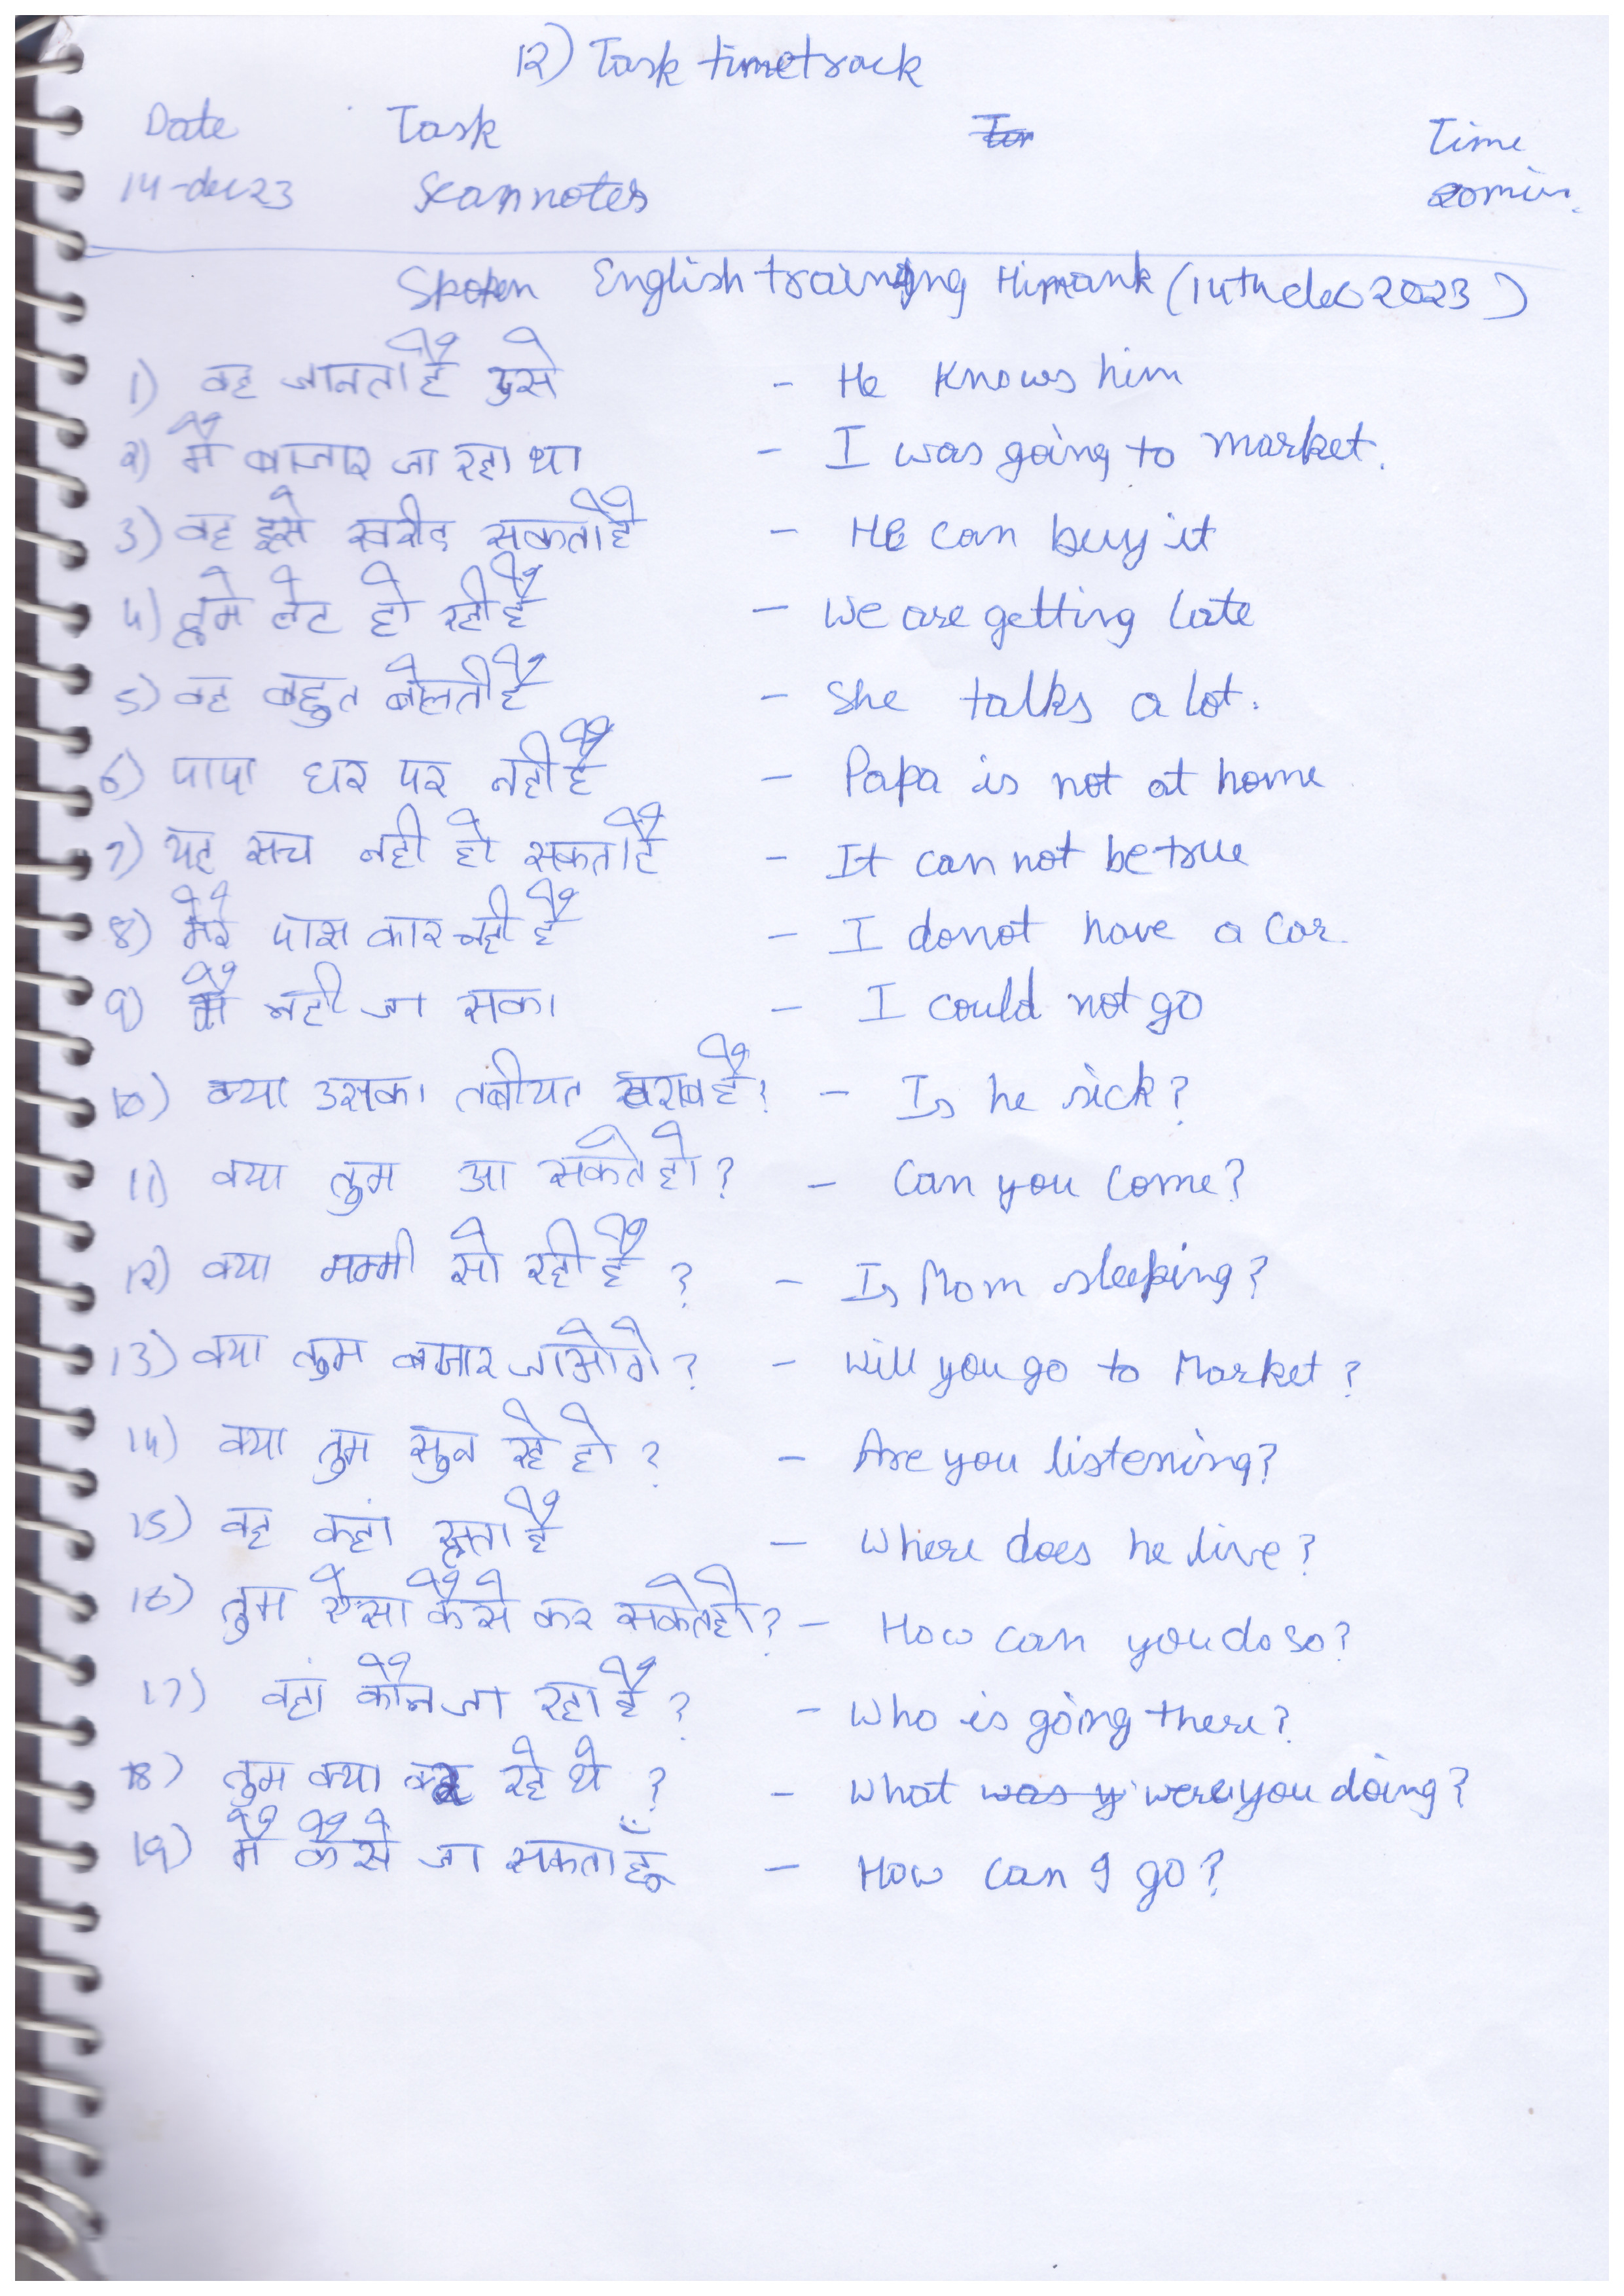 12) Task timetrack
Date Task Time
14-dec23 Scan notes 20min.
Spoken English training Himank (14th dec 2023)
1) वह जानता है उसे - He knows him
2) मैं बाजार जा रहा था - I was going to market.
3) वह इसे खरीद सकता है - HE can buy it
4) हमे लेट हो रही है - We are getting late
5) वह बहुत बोलती है - She talks a lot.
6) पापा घर पर नही है - Papa is not at home
7) यह सच नही हो सकता है - It can not be true
8) मेरे पास कार नही है - I donot have a car.
9) मै नही जा सका - I could not go
10) क्या उसका तबीयत खराब है? - Is he sick?
11) क्या तुम आ सकते हो? - Can you come?
12) क्या मम्मी सो रही है ? - Is Mom sleeping?
13) क्या तुम बाजार जाओगे? - Will you go to Market?
14) क्या तुम सुन रहे हो ? - Are you listening?
15) वह कहां रहता है - Where does he live?
16) तुम ऐसा कैसे कर सकते हो? - How can you do so?
17) वहां कौन जा रहा है ? - Who is going there?
18) तुम क्या कर रहे थे ? - What was y were you doing?
19) मै कैसे जा सकता हूँ - How can I go?